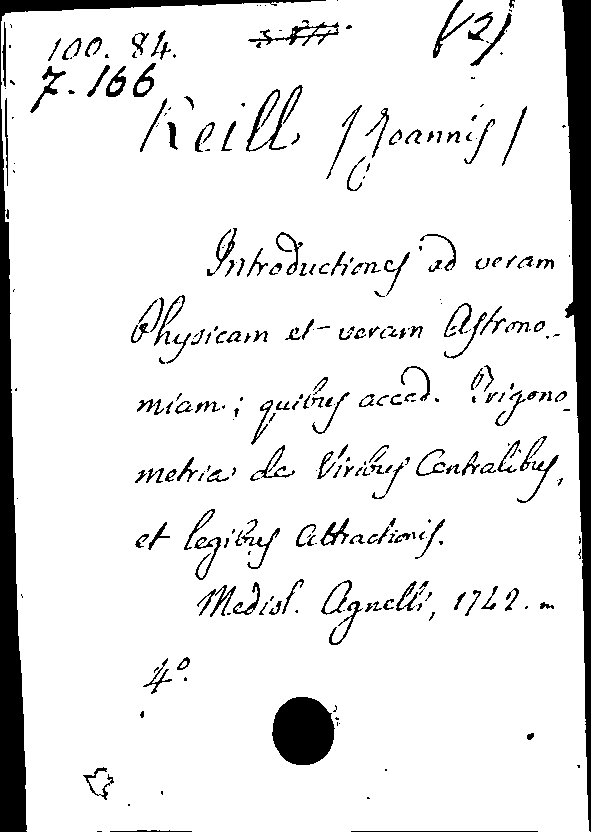 100. 84. (2)
7. 166
Keill /Joannis/
Introductiones ad veram
Physicam et veram Astrono-
miam; quibus acced. Trigono-
metria de Viribus Centralibus,
et legibus attractionis.
Mediol. Agnelli, 1742. in
4º.